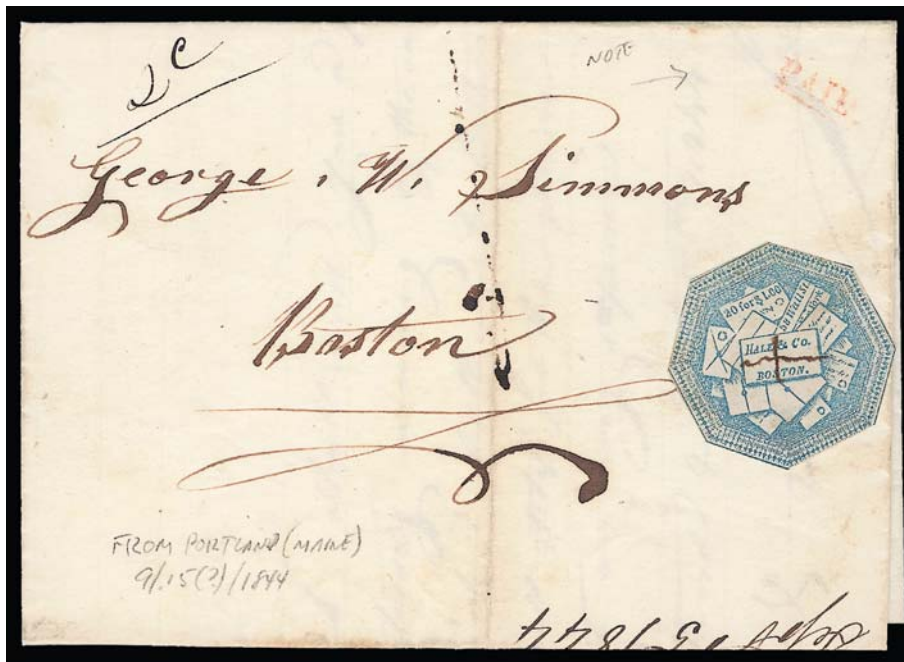 2c
NOTE
PAID
George . W. Simmons
Boston
20 for $1.00
HALE & CO.
BOSTON.
FROM PORTLAND (MAINE)
9/15(?)/1844
Sept 15 1844